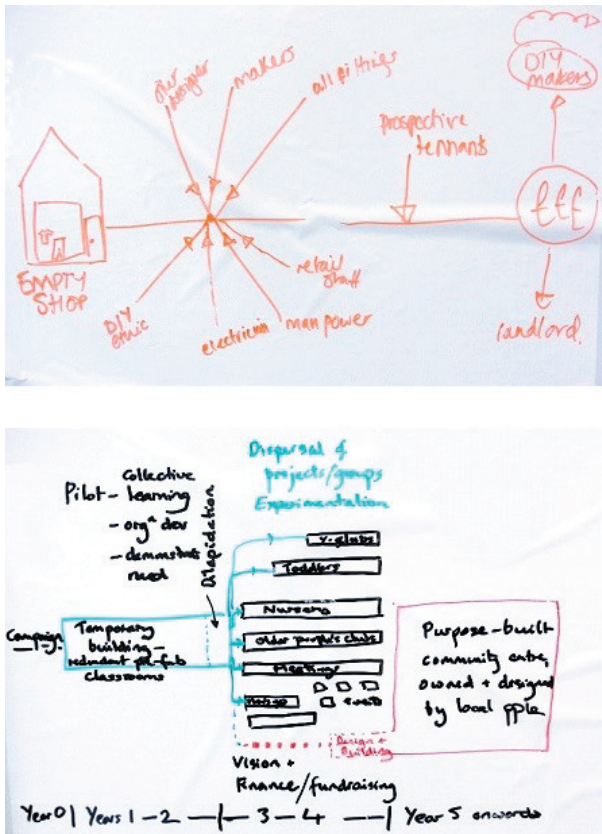 DIY
makers
our
designer
makers
all fittings
prospective
tennants
£££
EMPTY
SHOP
DIY
ethic
electrician
man power
retail
staff
landlord.
Dispersal of
projects/groups
Experimentation
Collective
Pilot – learning
– orgⁿ dev
– demonstrate
need
Dilapidation
Y. clubs
Toddlers
Nursery
older people's clubs
Meetings
events
Campaign
Temporary
building –
redundant pre-fab
classrooms
Purpose-built
community centre,
owned + designed
by local pple
Design +
Building
Vision +
Finance/fundraising
Year 0 | Years 1 – 2 – | – 3 – 4 – | Year 5 onwards